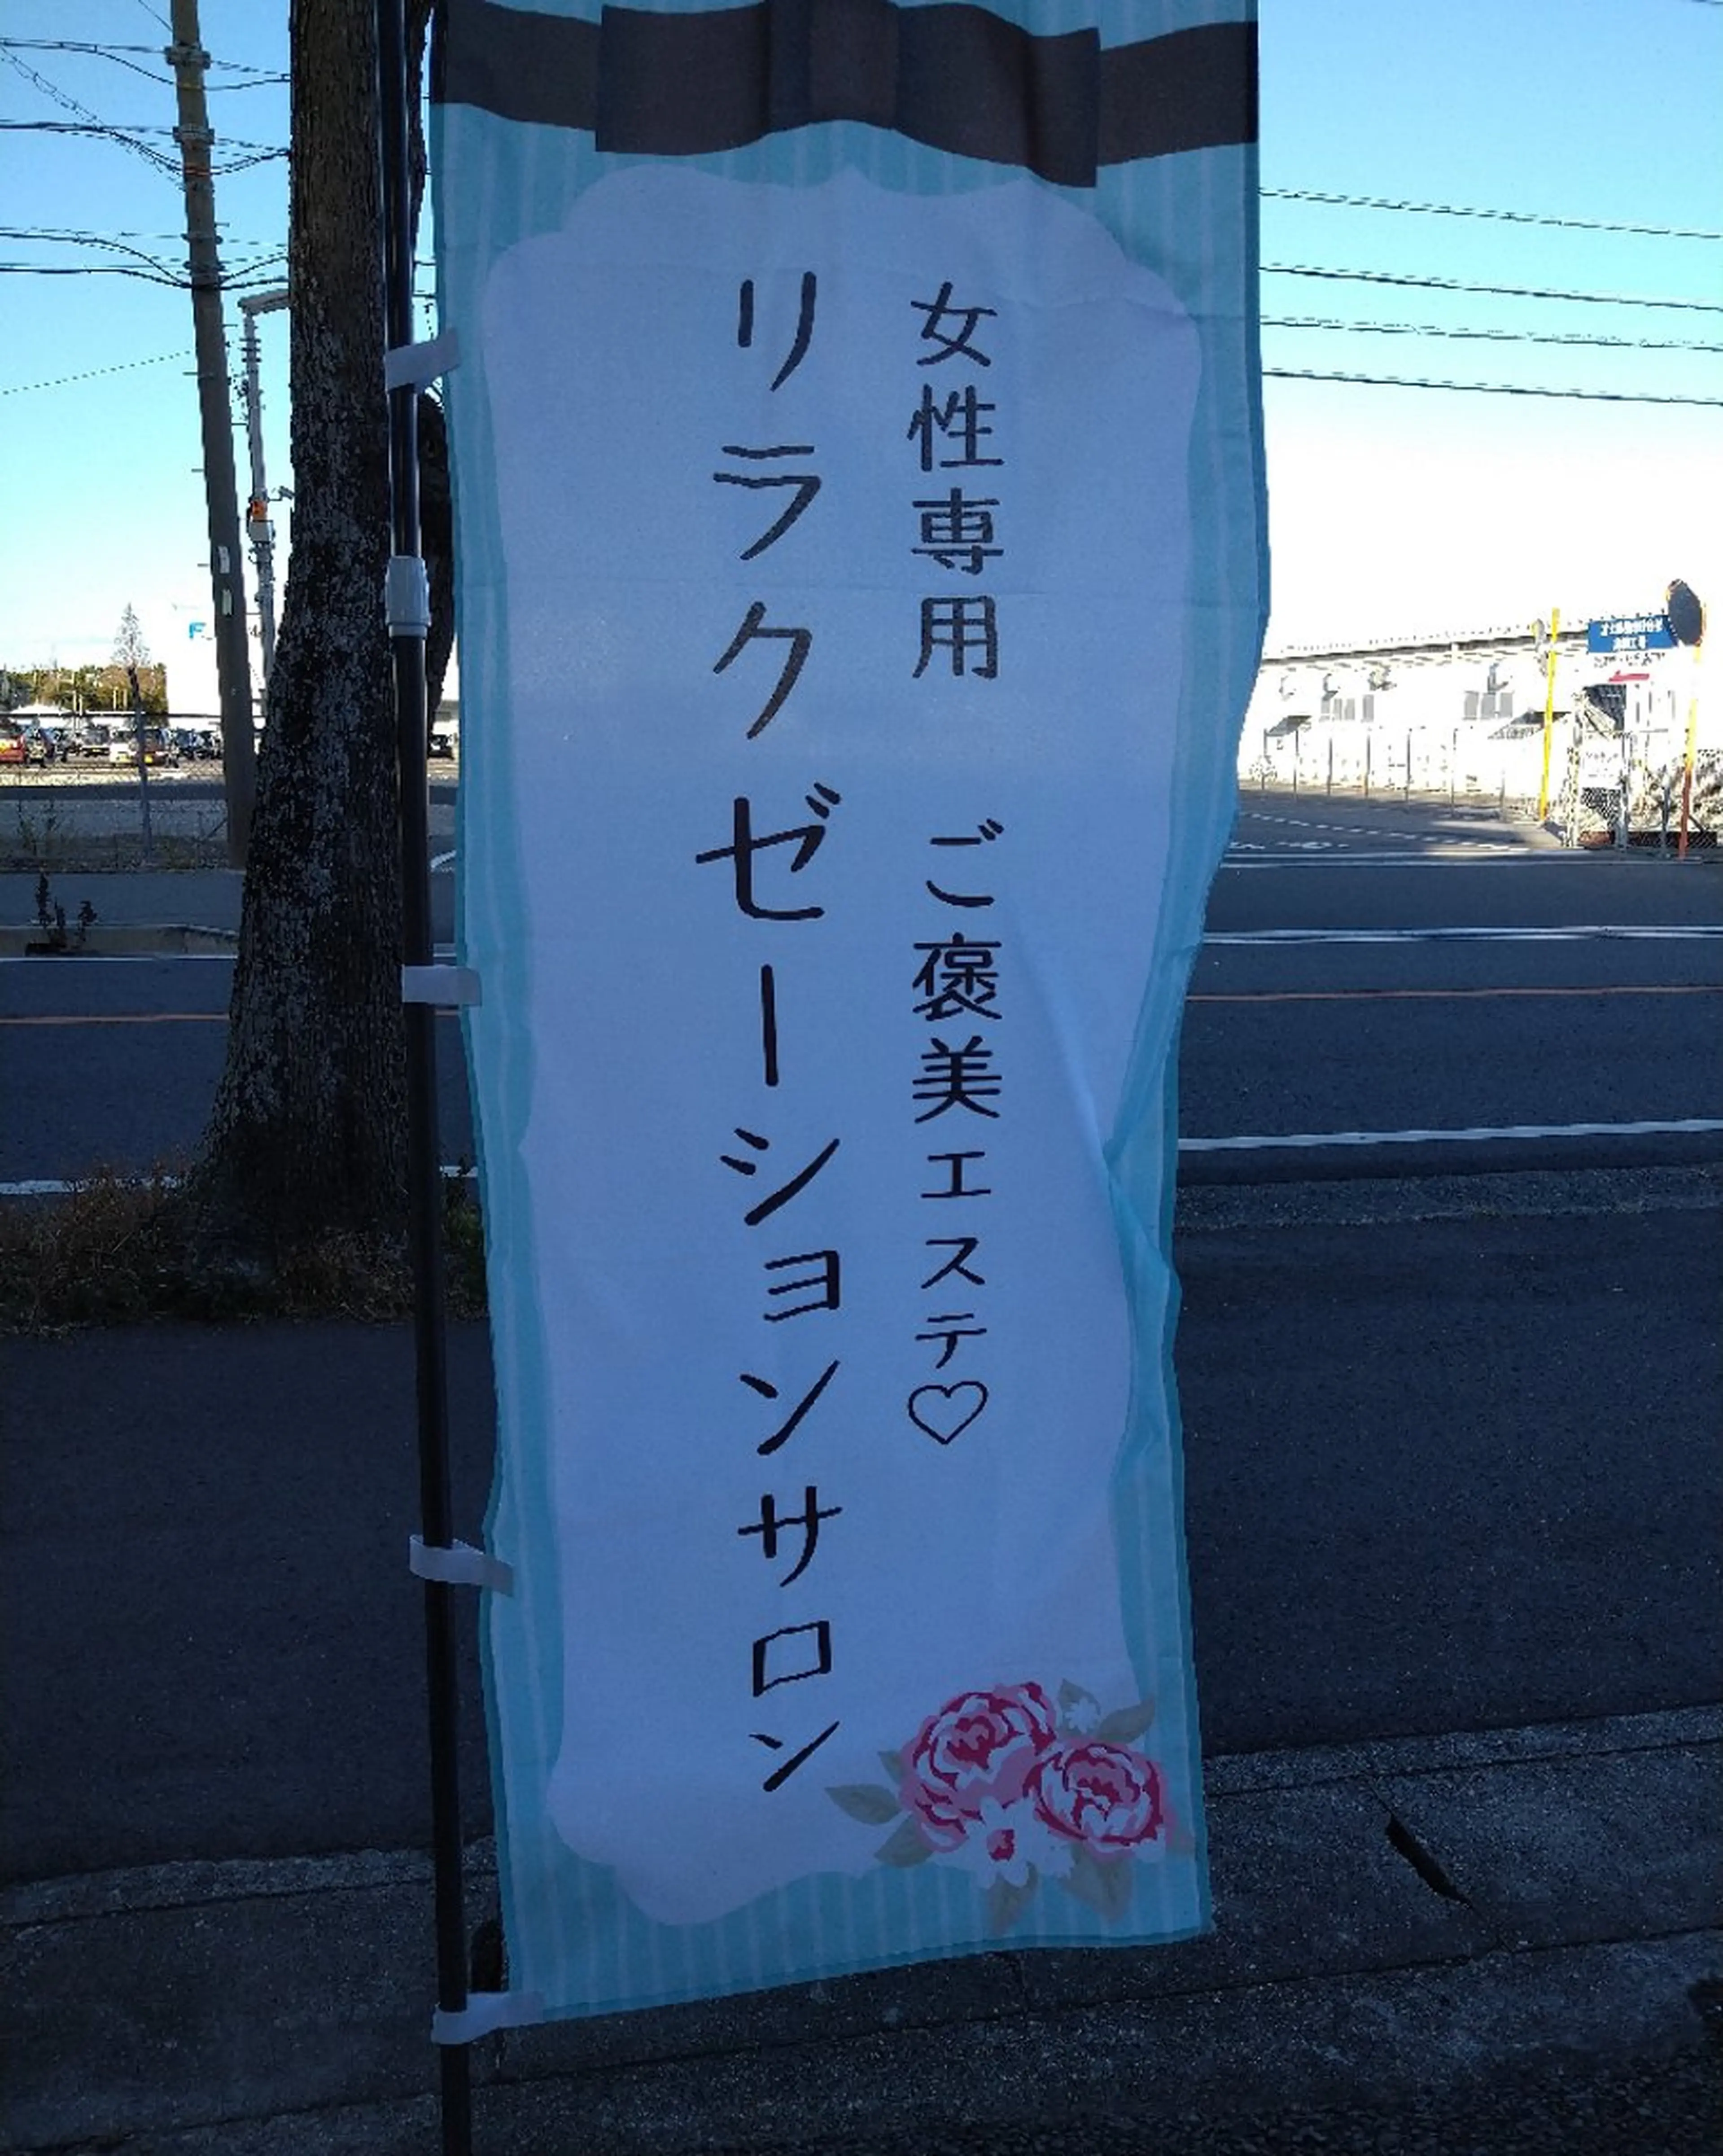 女性専用 ご褒美エステ♡
リラクゼーションサロン